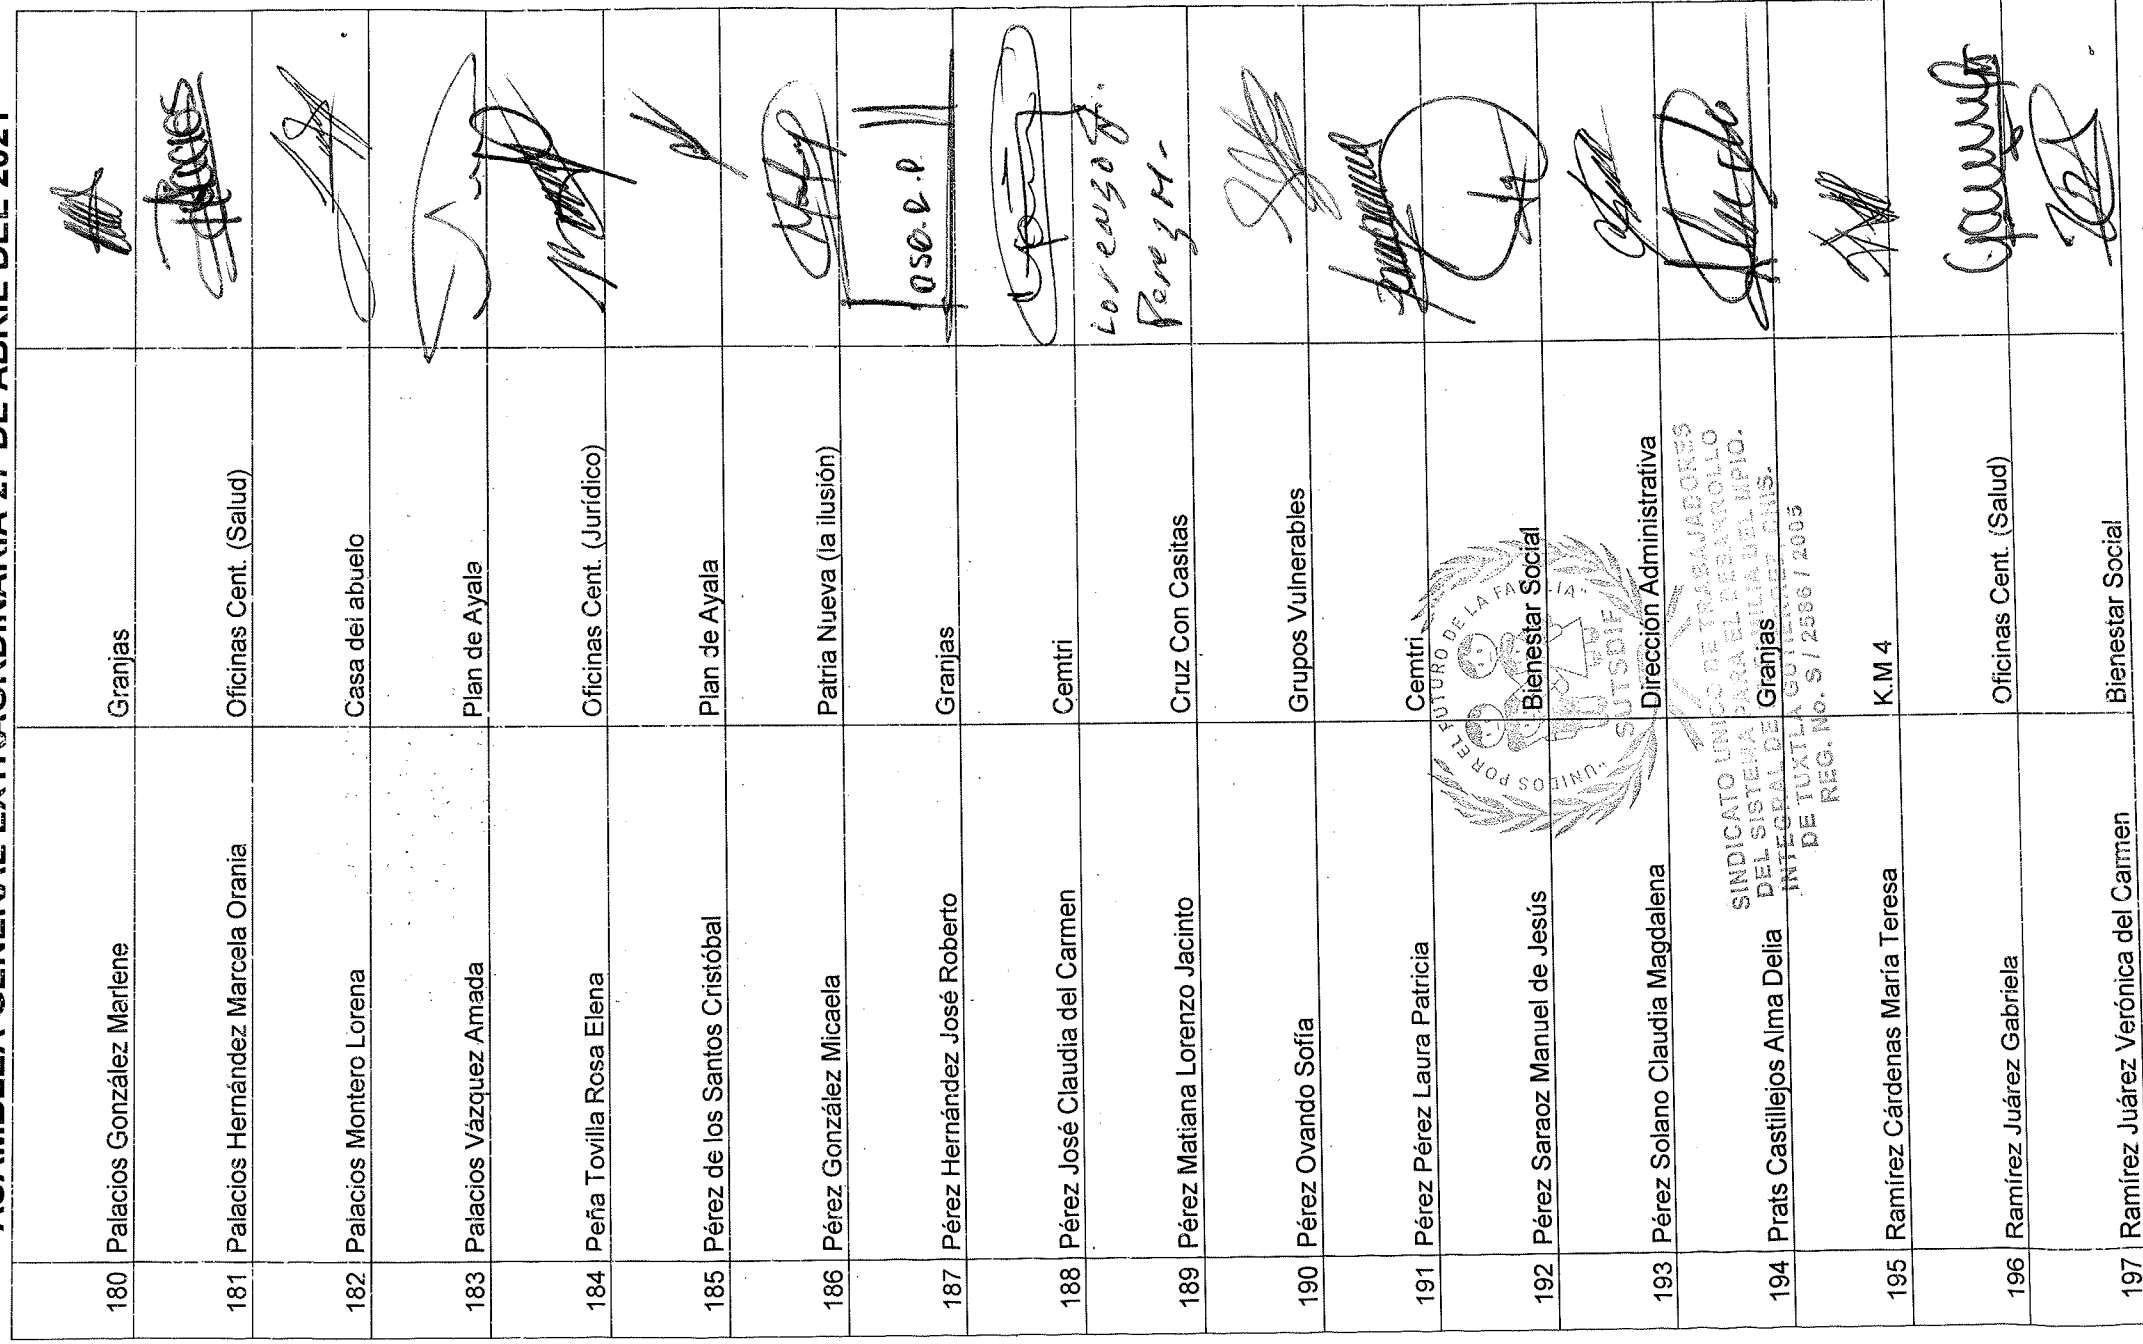 ASAMBLEA GENERAL EXTRAORDINARIA 27 DE ABRIL DEL 2021
180 Palacios González Marlene Granjas
181 Palacios Hernández Marcela Orania Oficinas Cent. (Salud)
182 Palacios Montero Lorena Casa del abuelo
183 Palacios Vázquez Amada Plan de Ayala
184 Peña Tovilla Rosa Elena Oficinas Cent. (Jurídico)
185 Pérez de los Santos Cristóbal Plan de Ayala
186 Pérez González Micaela Patria Nueva (la ilusión)
187 Pérez Hernández José Roberto Granjas
188 Pérez José Claudia del Carmen Cemtri
189 Pérez Matiana Lorenzo Jacinto Cruz Con Casitas Lorenzo J. Perez M.
190 Pérez Ovando Sofía Grupos Vulnerables
191 Pérez Pérez Laura Patricia Cemtri
192 Pérez Saraoz Manuel de Jesús Bienestar Social
193 Pérez Solano Claudia Magdalena Dirección Administrativa
194 Prats Castillejos Alma Delia Granjas
195 Ramírez Cárdenas María Teresa K.M 4
196 Ramírez Juárez Gabriela Oficinas Cent. (Salud)
197 Ramírez Juárez Verónica del Carmen Bienestar Social
"UNIDOS POR EL FUTURO DE LA FAMILIA"
SUTSDIF
SINDICATO UNICO DE TRABAJADORES
DEL SISTEMA PARA EL DESARROLLO
INTEGRAL DE LA FAMILIA DEL MPIO.
DE TUXTLA GUTIERREZ, CHIS.
REG. No. S / 2586 / 2005